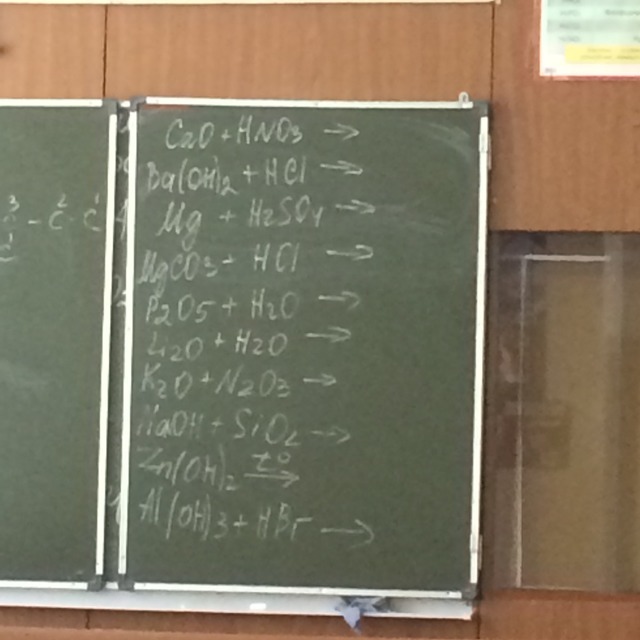 3 2 1
- C - C
CaO + HNO3 →
Ba(OH)2 + HCl →
Mg + H2SO4 →
MgCO3 + HCl →
P2O5 + H2O →
Li2O + H2O →
K2O + N2O3 →
NaOH + SiO2 →
Zn(OH)2 t° →
Al(OH)3 + HBr →